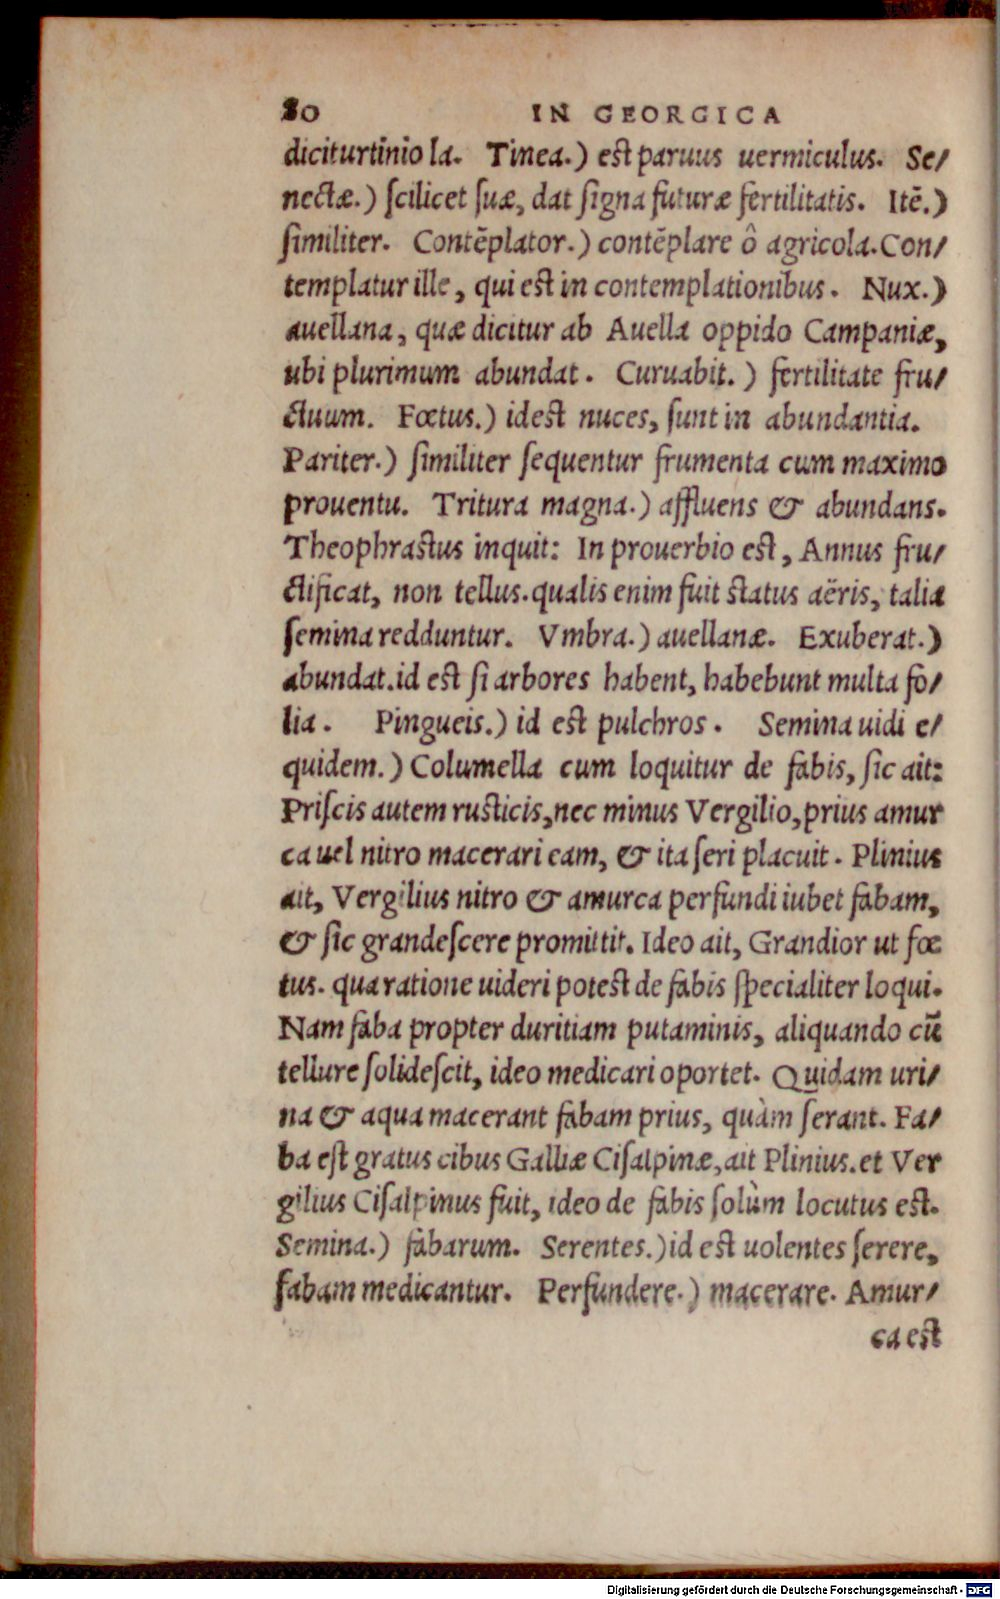 80 IN GEORGICA
diciturtinio la. Tinea.) est paruus uermiculus. Se/
nectæ.) ſcilicet ſuæ, dat ſigna futuræ fertilitatis. Itē.)
ſimiliter. Contēplator.) contēplare ô agricola. Con/
templatur ille, qui est in contemplationibus. Nux.)
auellana, quæ dicitur ab Auella oppido Campaniæ,
ubi plurimum abundat. Curuabit.) fertilitate fru/
ctuum. Fœtus.) idest nuces, ſunt in abundantia.
Pariter.) ſimiliter ſequentur frumenta cum maximo
prouentu. Tritura magna.) affluens & abundans.
Theophrastus inquit: In prouerbio est, Annus fru/
ctificat, non tellus. qualis enim fuit status aëris, talia
ſemina redduntur. Vmbra.) auellanæ. Exuberat.)
abundat. id est ſi arbores habent, habebunt multa fo/
lia. Pingueis.) id est pulchros. Semina uidi e/
quidem.) Columella cum loquitur de fabis, ſic ait:
Priſcis autem rusticis, nec minus Vergilio, prius amur
ca uel nitro macerari eam, & ita ſeri placuit. Plinius
ait, Vergilius nitro & amurca perfundi iubet fabam,
& ſic grandeſcere promittit. Ideo ait, Grandior ut fœ
tus. qua ratione uideri potest de fabis ſpecialiter loqui.
Nam faba propter duritiam putaminis, aliquando cū
tellure ſolideſcit, ideo medicari oportet. Quidam uri/
na & aqua macerant fabam prius, quàm ſerant. Fa/
ba eſt gratus cibus Galliæ Ciſalpinæ, ait Plinius. et Ver
gilius Ciſalpinus fuit, ideo de fabis ſolùm locutus est.
Semina.) fabarum. Serentes.) id est uolentes ſerere,
fabam medicantur. Perfundere.) macerare. Amur/
ca est
Digitalisierung gefördert durch die Deutsche Forschungsgemeinschaft - DFG